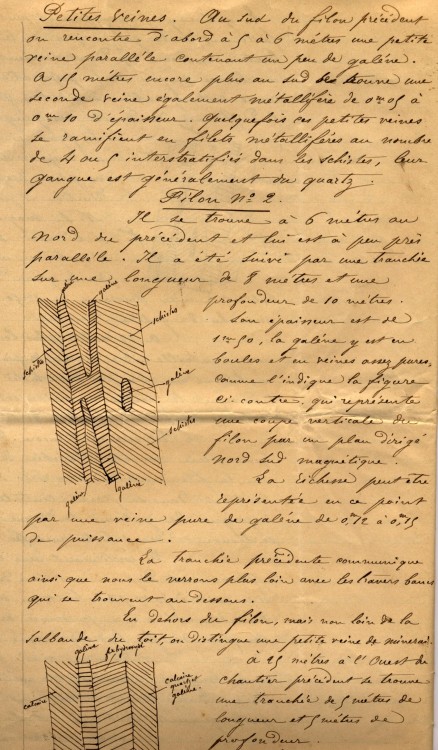 Petites veines. Au sud du filon précédent
on rencontre d'abord à 5 à 6 mètres une petite
veine parallèle contenant un peu de galène.
A 15 mètres encore plus au sud se trouve une
seconde veine également métallifère de 0m05 à
0m10 d'épaisseur. Quelquefois ces petites veines
se ramifient en filets métallifères au nombre
de 4 ou 5 interstratifiés dans les schistes, leur
gangue est généralement du quartz.
Filon No 2.
Il se trouve à 6 mètres au
Nord du précédent et lui est à peu près
parallèle. Il a été suivi par une tranchée
sur une longueur de 8 mètres et une
profondeur de 10 mètres.
Son épaisseur est de
1m50, la galène y est en
boules et en veines assez pures,
comme l'indique la figure
ci-contre, qui représente
une coupe verticale du
filon par un plan dirigé
Nord Sud magnétique.
galène
galène
schistes
schistes
galène
schistes
galène
galène
La richesse peut être
représentée en ce point
par une veine pure de galène de 0m12 à 0m15
de puissance.
La tranchée précédente communique
ainsi que nous le verrons plus loin avec les travers bancs
qui se trouvent au dessous.
En dehors du filon, mais non loin de la
salbande du toit, on distingue une petite veine de minerai.
galène
calcaire
calcaire
quartz et
galène
à 25 mètres à l'Ouest du
chantier précédent se trouve
une tranchée de 5 mètres de
longueur et 5 mètres de
profondeur.